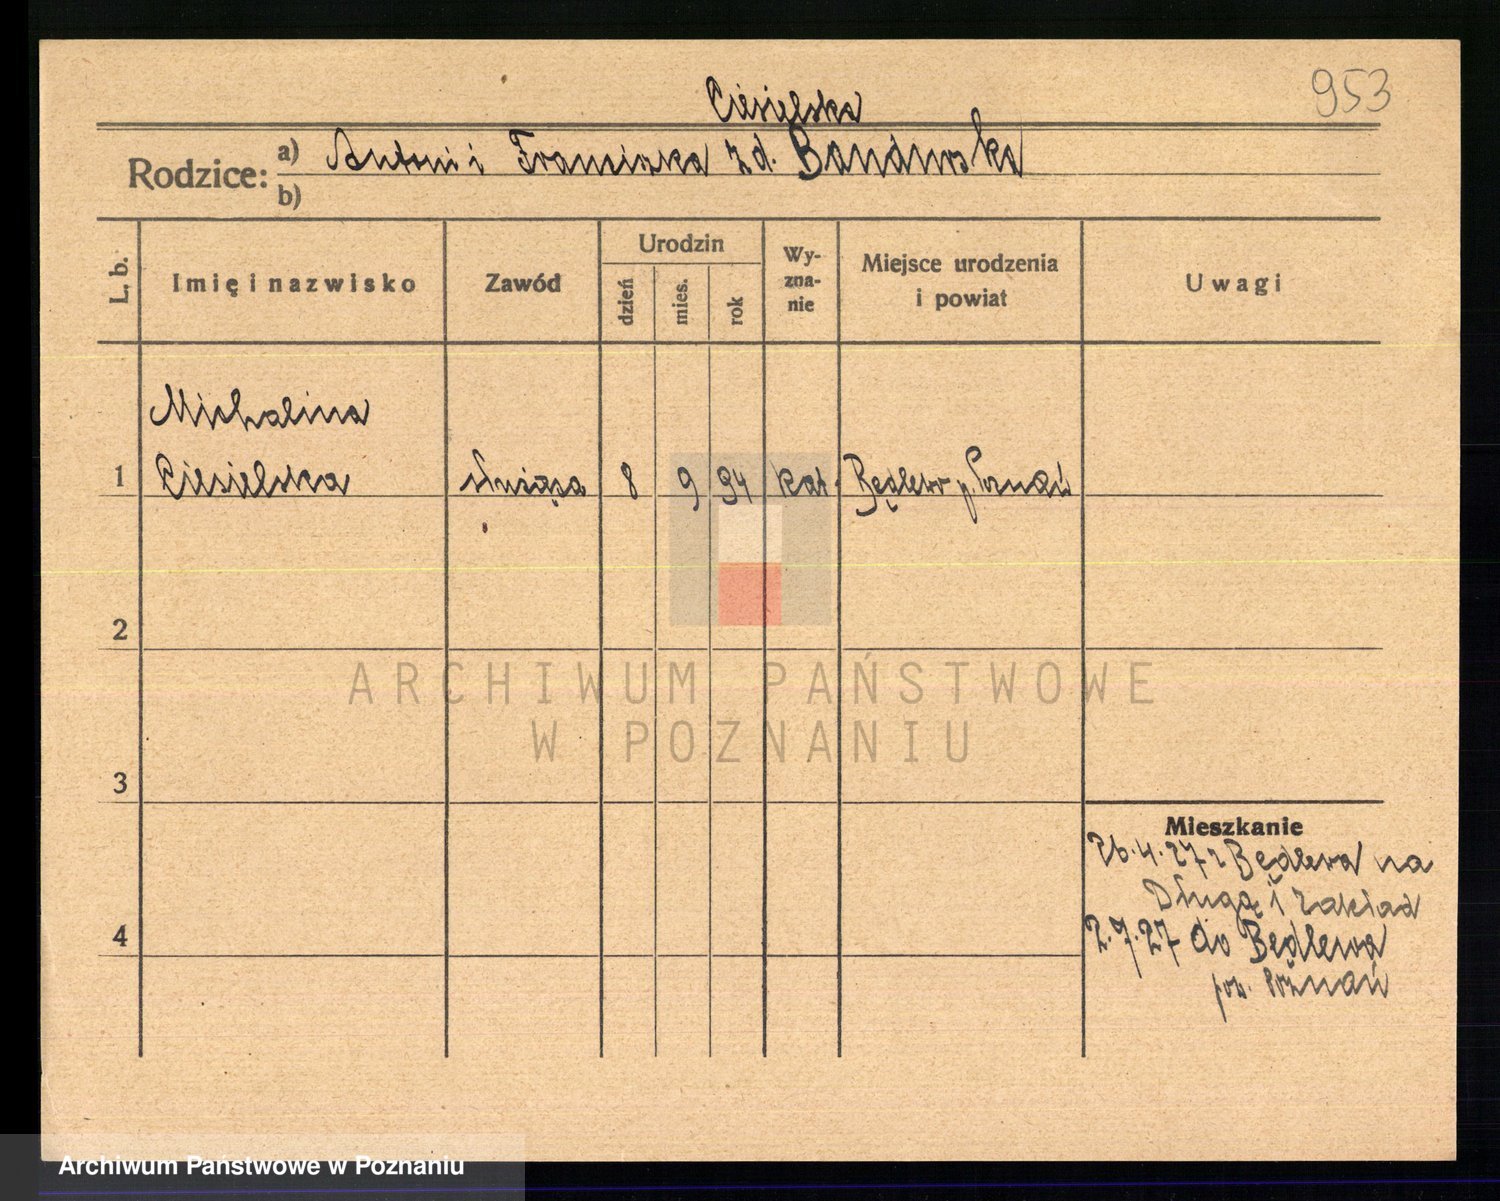 953
Ciesielska
Rodzice: a) Antoni i Franciszka zd. Bandurska
b)
L. b. Imię i nazwisko Zawód Urodzin dzień mies. rok Wy-zna-nie Miejsce urodzenia i powiat Uwagi
Michalina
1 Ciesielska służąca 8 9 94 kat. Będlewo p. Poznań
2
ARCHIWUM PAŃSTWOWE
W POZNANIU
3
Mieszkanie
26.4.27 z Będlewa na
Długą i zakład
4 2.7.27 do Będlewa
pow. Poznań
Archiwum Państwowe w Poznaniu